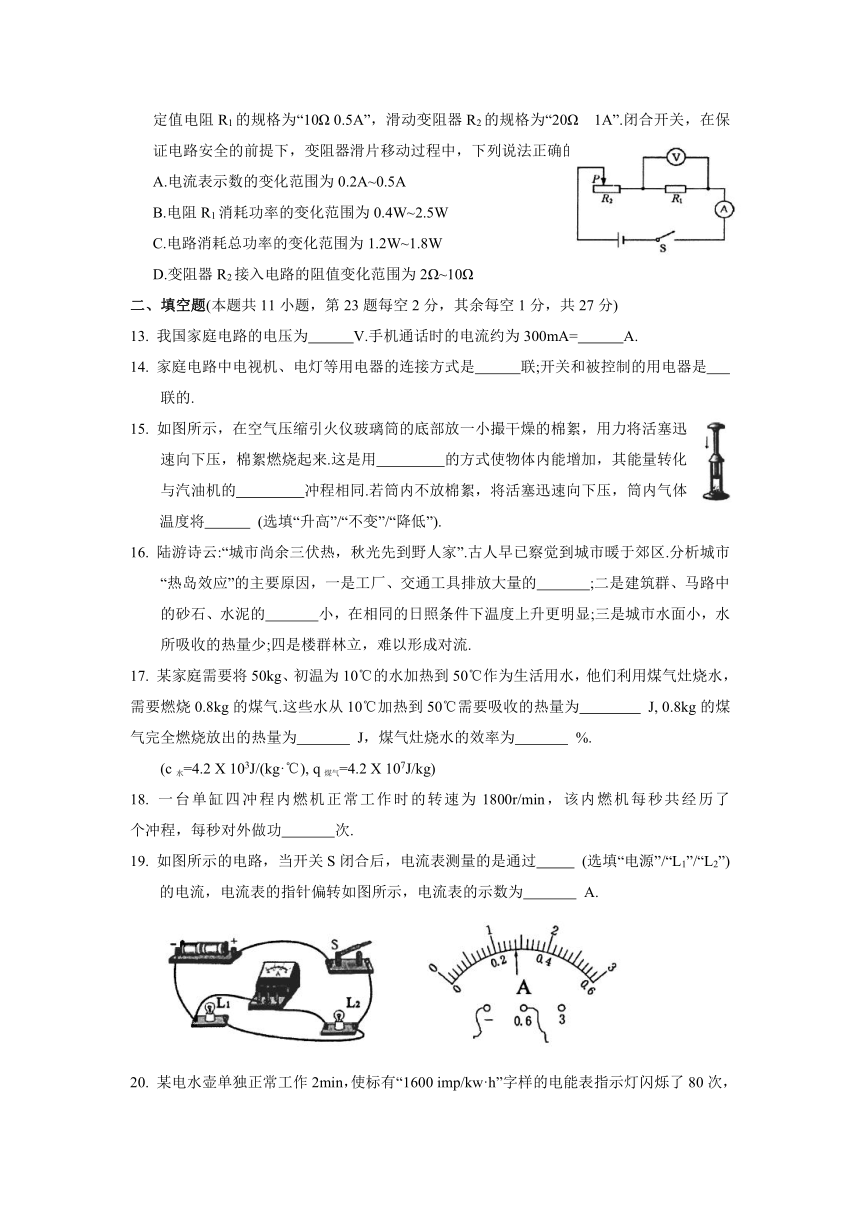 定值电阻 R1 的规格为“10Ω 0.5A”，滑动变阻器 R2 的规格为“20Ω 1A”.闭合开关，在保
证电路安全的前提下，变阻器滑片移动过程中，下列说法正确的
A.电流表示数的变化范围为 0.2A~0.5A
B.电阻 R1 消耗功率的变化范围为 0.4W~2.5W
C.电路消耗总功率的变化范围为 1.2W~1.8W
D.变阻器 R2 接入电路的阻值变化范围为 2Ω~10Ω
V
P
R2
R1
A
S
二、填空题(本题共 11 小题，第 23 题每空 2 分，其余每空 1 分，共 27 分)
13. 我国家庭电路的电压为______V.手机通话时的电流约为 300mA=______A.
14. 家庭电路中电视机、电灯等用电器的连接方式是______联;开关和被控制的用电器是___
联的.
15. 如图所示，在空气压缩引火仪玻璃筒的底部放一小撮干燥的棉絮，用力将活塞迅
速向下压，棉絮燃烧起来.这是用_________的方式使物体内能增加，其能量转化
与汽油机的_________冲程相同.若筒内不放棉絮，将活塞迅速向下压，筒内气体
温度将______ (选填“升高”/“不变”/“降低”).
16. 陆游诗云:“城市尚余三伏热，秋光先到野人家”.古人早已察觉到城市暖于郊区.分析城市
“热岛效应”的主要原因，一是工厂、交通工具排放大量的_______;二是建筑群、马路中
的砂石、水泥的_______小，在相同的日照条件下温度上升更明显;三是城市水面小，水
所吸收的热量少;四是楼群林立，难以形成对流.
17. 某家庭需要将 50kg、初温为 10℃的水加热到 50℃作为生活用水，他们利用煤气灶烧水，
需要燃烧 0.8kg 的煤气.这些水从 10℃加热到 50℃需要吸收的热量为________ J, 0.8kg 的煤
气完全燃烧放出的热量为_______ J，煤气灶烧水的效率为_______ %.
(c 水=4.2 X 10³J/(kg·℃), q 煤气=4.2 X 10⁷J/kg)
18. 一台单缸四冲程内燃机正常工作时的转速为 1800r/min，该内燃机每秒共经历了
个冲程，每秒对外做功_______次.
19. 如图所示的电路，当开关 S 闭合后，电流表测量的是通过_____ (选填“电源”/“L1”/“L2”)
的电流，电流表的指针偏转如图所示，电流表的示数为_______ A.
- +
S
A
L1
L2
0 1 2 3
0 0.2 0.4 0.6
A
- 0.6 3
20. 某电水壶单独正常工作 2min，使标有“1600 imp/kw·h”字样的电能表指示灯闪烁了 80 次，